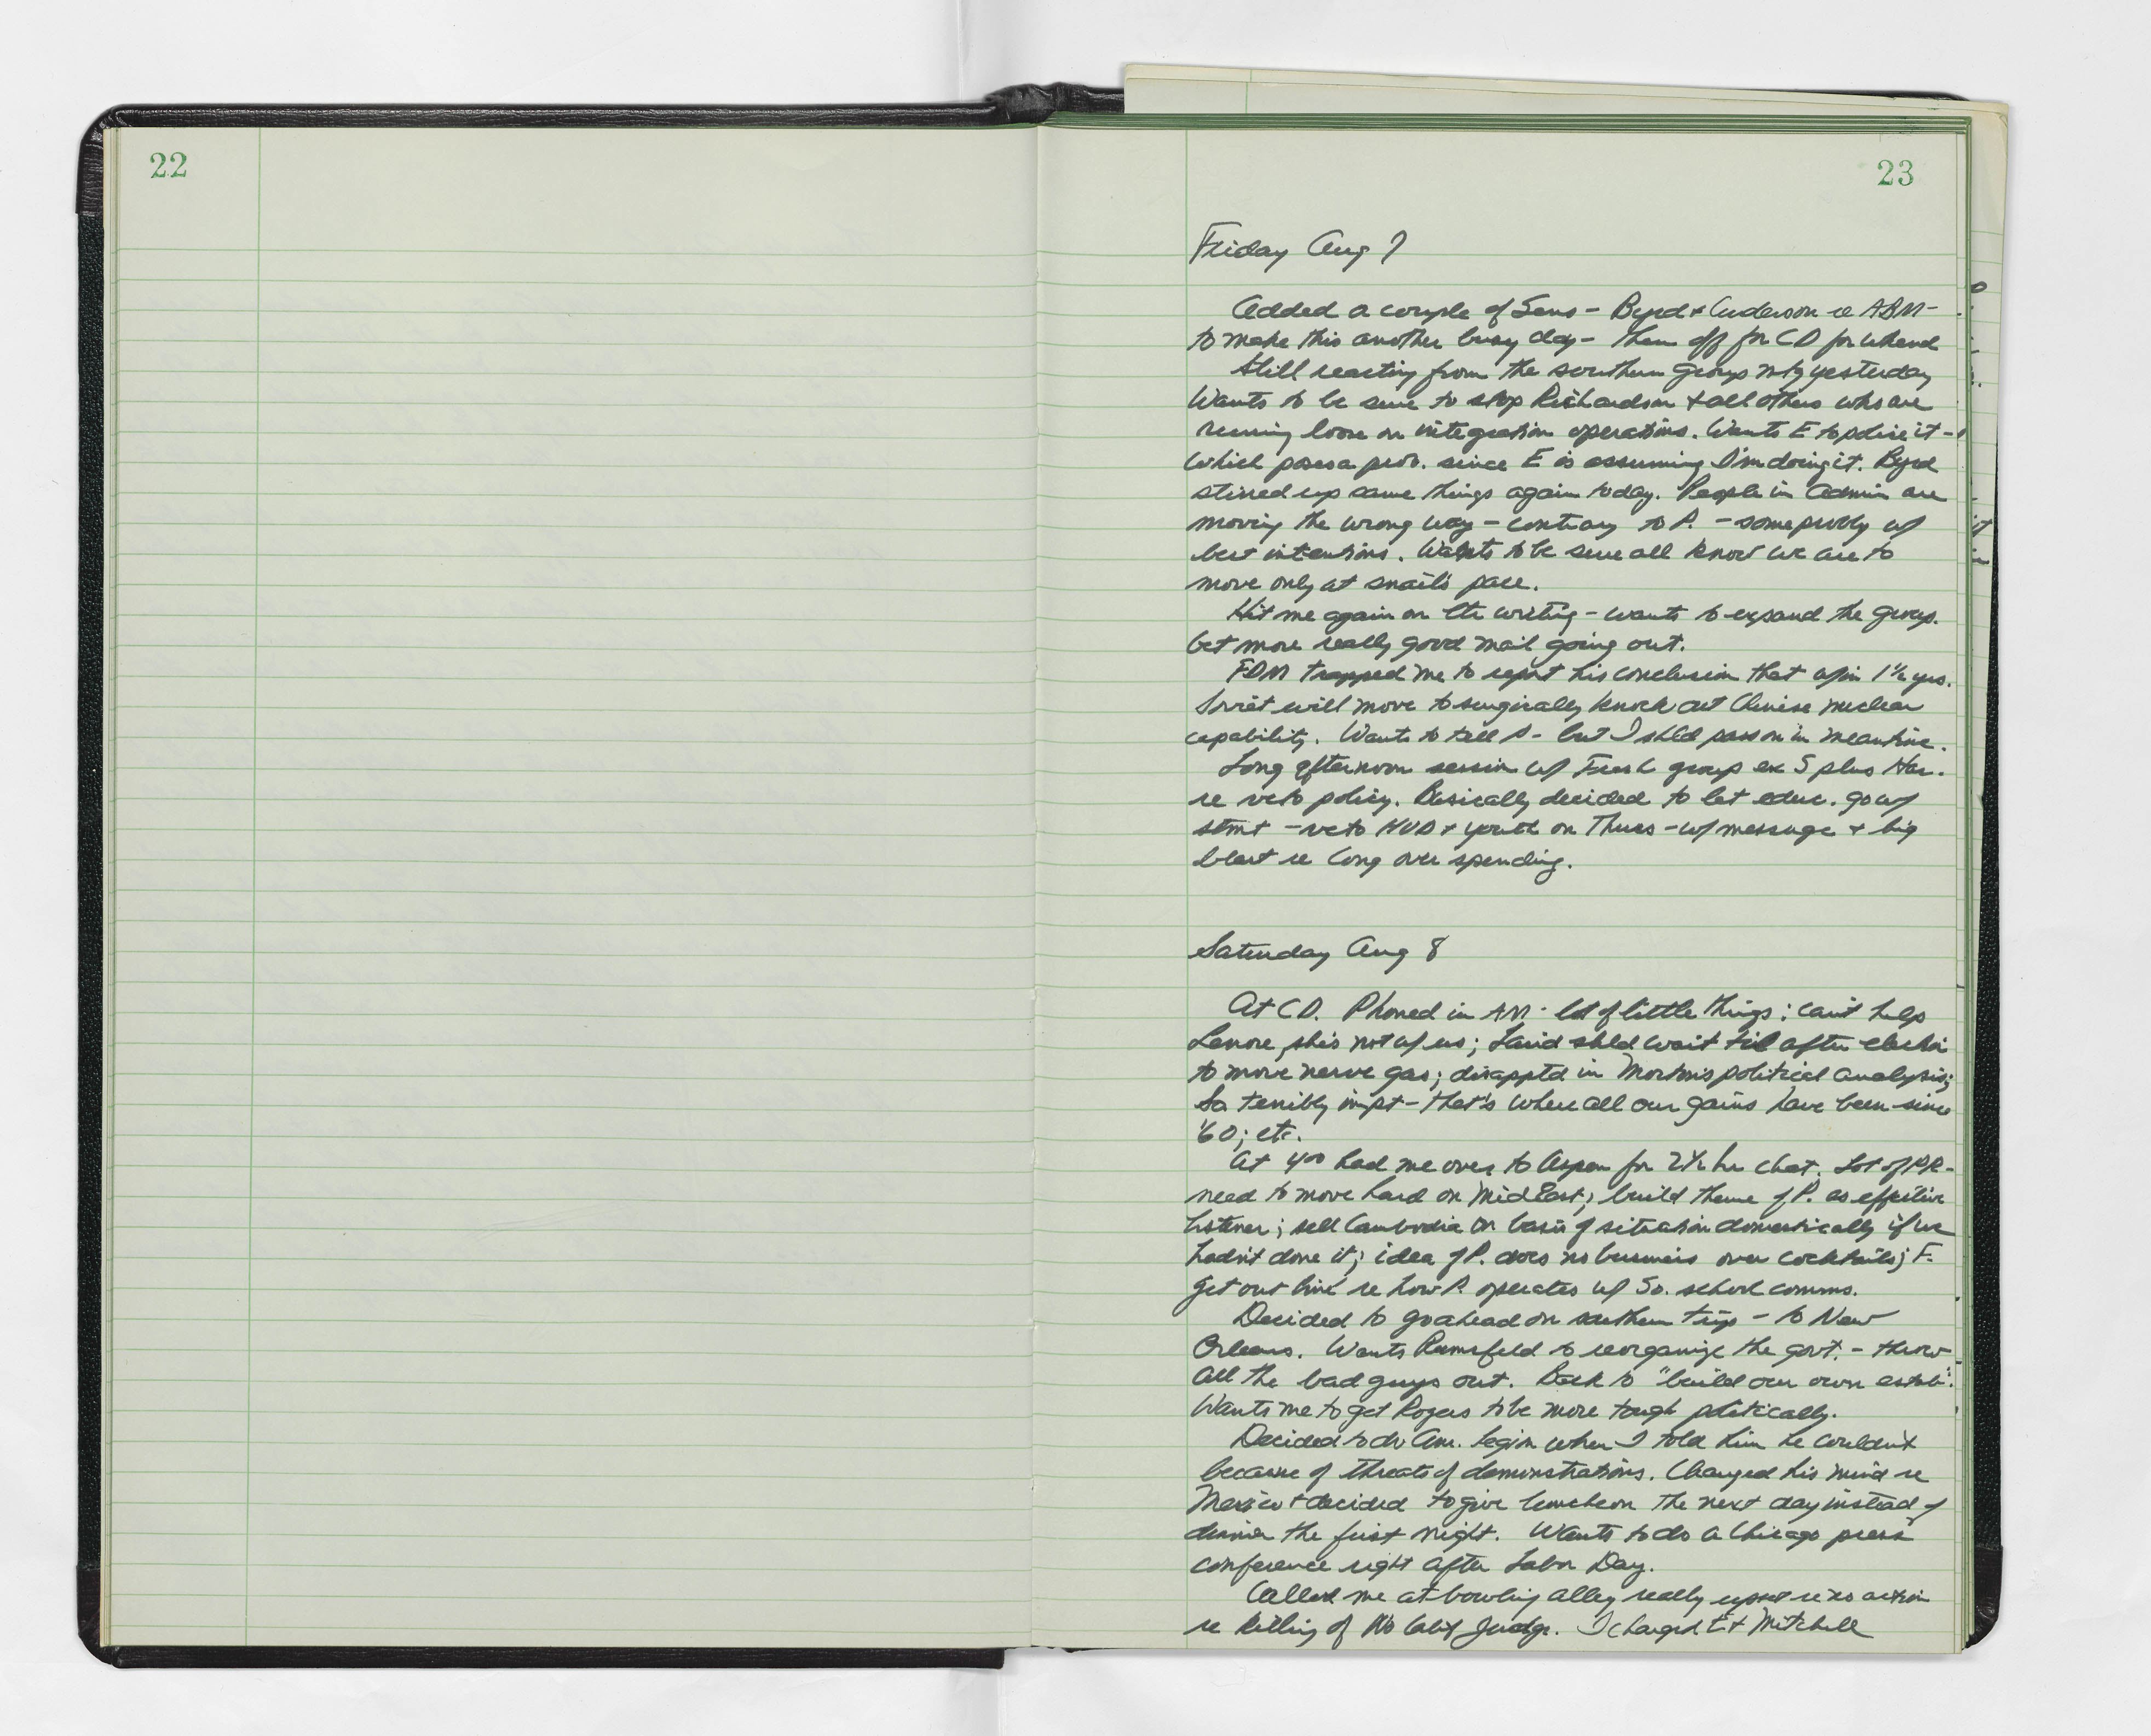 22
23
Friday Aug 7
Added a couple of Sens - Byrd + Anderson re ABM -
to make this another busy day - then off for CD for wkend
Still reacting from the southern group mtg yesterday
Wants to be sure to stop Richardson + all others who are
running loose on integration operations. Wants E to police it -
which poses a prob. since E is assuming I'm doing it. Byrd
stirred up same things again today. People in Admin are
moving the wrong way - contrary to P. - some probly w/
best intentions. Wants to be sure all know we are to
move only at snail's pace.
Hit me again on ltr writing - wants to expand the group.
Get more really good mail going out.
trapped me to report his conclusion that w/in 1½ yrs.
Soviet will move to surgically knock out Chinese nuclear
capability. Wants to tell P - but I shld pass on in meantime.
Long afternoon session w/ group ex S plus Har.
re veto policy. Basically decided to let educ. go w/
stmt - veto HUD + on Thurs - w/ message + big
blast re Cong over spending.
Saturday Aug 8
At CD. Phoned in AM - lot of little things; can't help
Lenore, she's not w/ us; Laird shld wait til after election
to move nerve gas; disapptd in Morton's political analysis;
So terribly impt - that's where all our gains have been since
'60; etc.
At 4⁰⁰ had me over to Aspen for 2½ hr chat. Lot of PR -
need to move hard on MidEast; build theme of P. as effective
listener; sell Cambodia on basis of situation domestically if we
hadn't done it; idea of P. does no business over cocktails;
get out line re how P. operates w/ So. school comms.
Decided to go ahead on southern trip - to New
Orleans. Wants Rumsfeld to reorganize the govt. - throw
all the bad guys out. Back to "build our own estab".
Wants me to get Rogers to be more tough politically.
Decided to do Am. Legion when I told him he couldn't
because of threats of demonstrations. Changed his mind re
Mexico + decided to give luncheon the next day instead of
dinner the first night. Wants to do a Chicago press
conference right after Labor Day.
Called me at bowling alley really upset re no action
re killing of No Calif Judge. I charged E + Mitchell